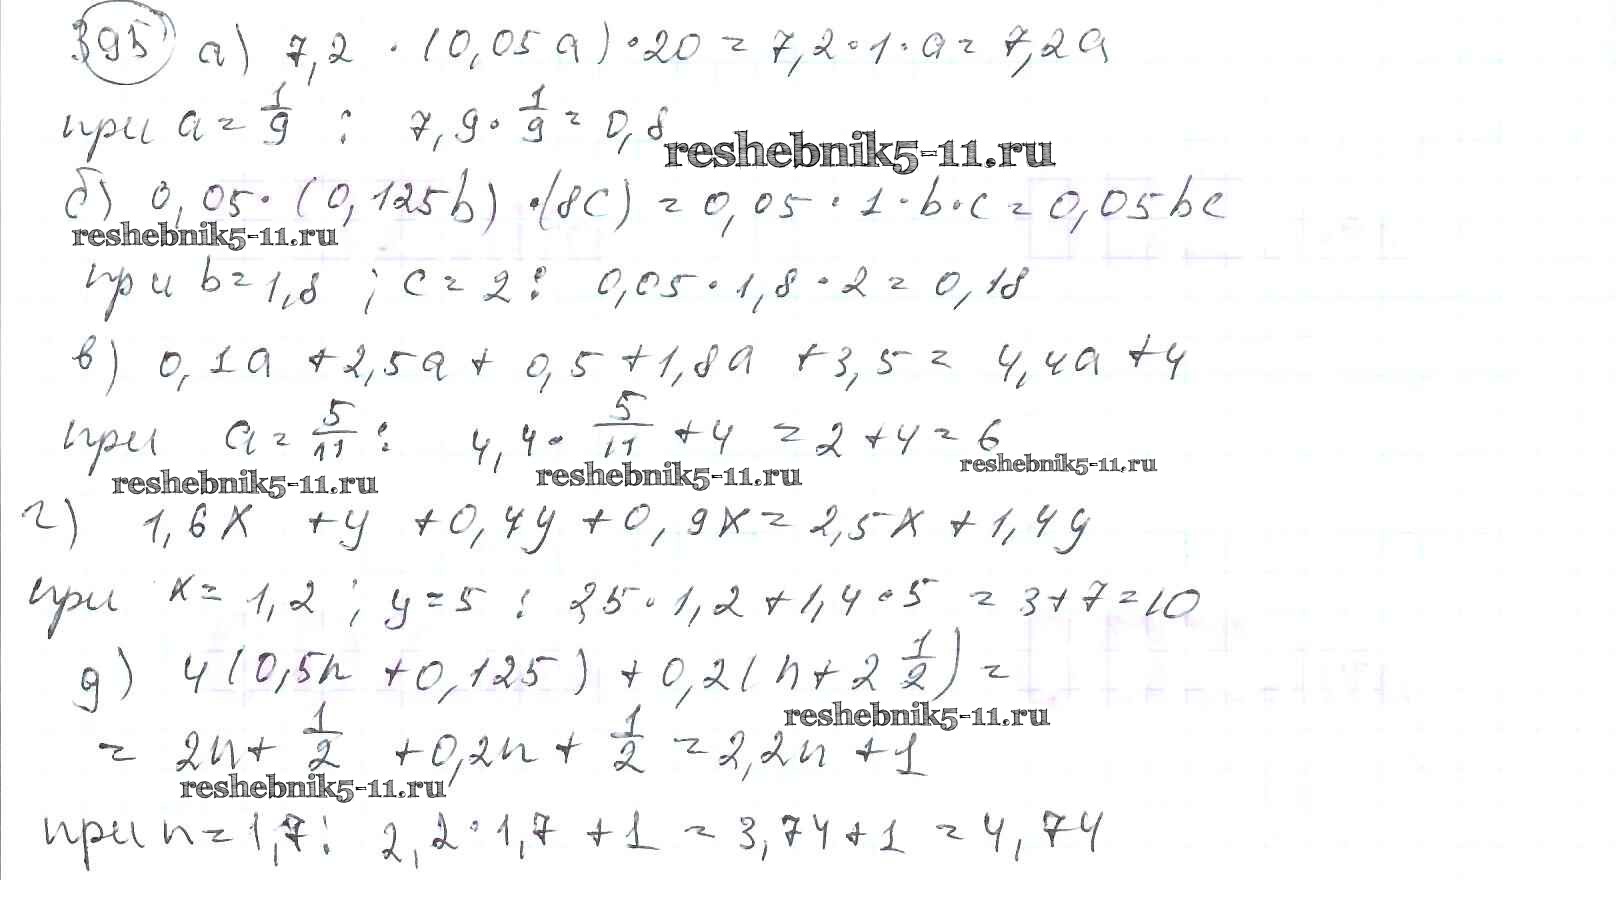 395 а) 7,2 · (0,05a) · 20 = 7,2 · 1 · a = 7,2a
при a = 1/9 : 7,9 · 1/9 = 0,8
reshebnik5-11.ru
б) 0,05 · (0,125b) · (8c) = 0,05 · 1 · b · c = 0,05bc
reshebnik5-11.ru
при b = 1,8 ; c = 2 : 0,05 · 1,8 · 2 = 0,18
в) 0,1a + 2,5a + 0,5 + 1,8a + 3,5 = 4,4a + 4
при a = 5/11 : 4,4 · 5/11 + 4 = 2 + 4 = 6
reshebnik5-11.ru reshebnik5-11.ru reshebnik5-11.ru
г) 1,6x + y + 0,4y + 0,9x = 2,5x + 1,4y
при x = 1,2 ; y = 5 : 2,5 · 1,2 + 1,4 · 5 = 3 + 7 = 10
д) 4(0,5n + 0,125) + 0,2(n + 2 1/2) =
reshebnik5-11.ru
= 2n + 1/2 + 0,2n + 1/2 = 2,2n + 1
reshebnik5-11.ru
при n = 1,7 : 2,2 · 1,7 + 1 = 3,74 + 1 = 4,74